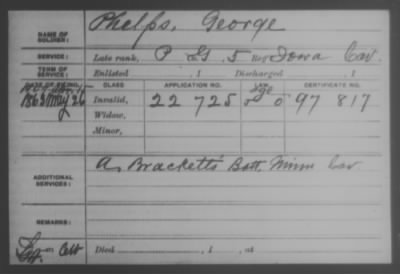 NAME OF SOLDIER: Phelps, George
SERVICE: Late rank, P G, 5 Reg Iowa Cav.
TERM OF SERVICE: Enlisted , 1 Discharged , 1
DATE OF FILING. CLASS. APPLICATION NO. LAW. CERTIFICATE NO.
1863 May 26 Invalid, 22 725 97 817
Widow,
Minor,
ADDITIONAL SERVICES: A, Brackett's Batt, Minn Cav.
REMARKS:
Died , 1 , at